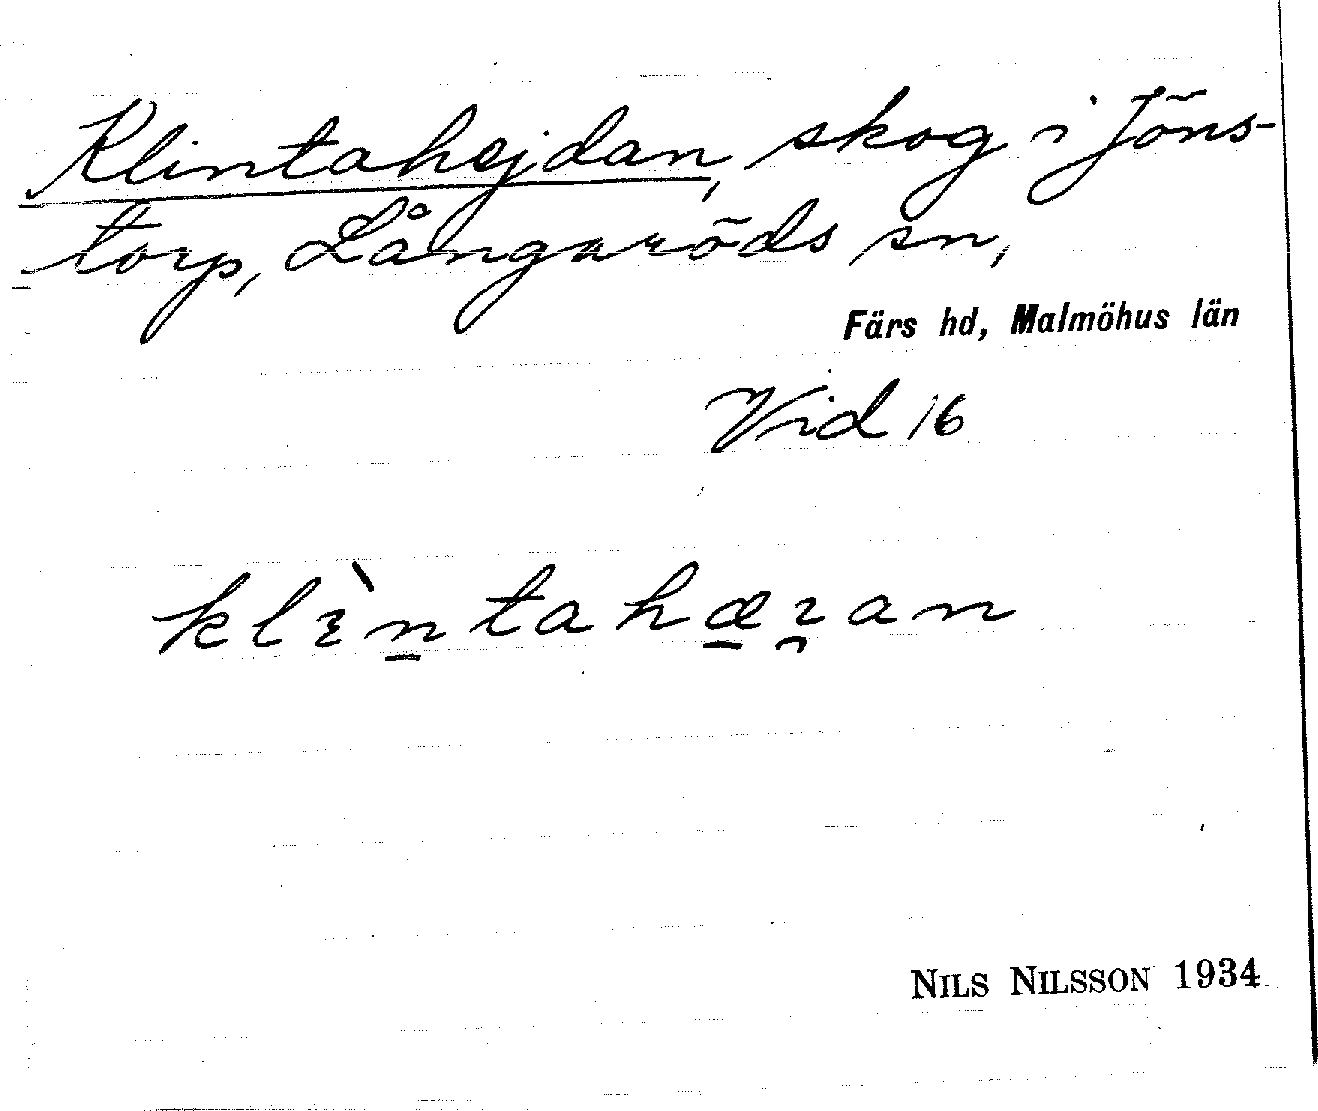 Klintahejdan, skog i Jöns-
torp, Långaröds sn,
Färs hd, Malmöhus län
Vid 16
klɪ̀n̠tahæ̠ɪ̯an
NILS NILSSON 1934